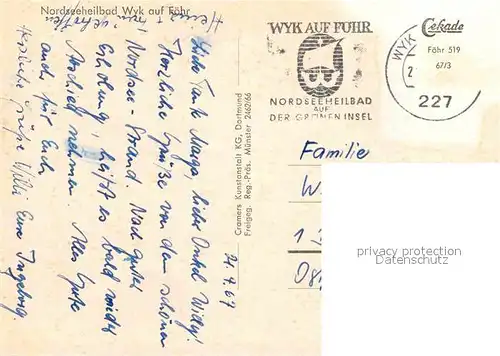 Nordseeheilbad Wyk auf Föhr
21.9.67
Liebe Tante Marga, lieber Onkel Willy!
Herzliche Grüße von dem schönen
Nordsee-Strand. Nach guter
Erholung, heißt es bald wieder
Abschied nehmen. Alles Gute
auch für Euch
Herzliche Grüße Willi Eure Ingeborg.
Cramers Kunstanstalt KG, Dortmund
Freigeg. Reg.-Präs. Münster 2462/66
WYK AUF FÖHR
NORDSEEHEILBAD
AUF
DER GRÜNEN INSEL
WYK
2
227
Cekade
Föhr 519
67/3
Familie
W
1
privacy protection
Datenschutz